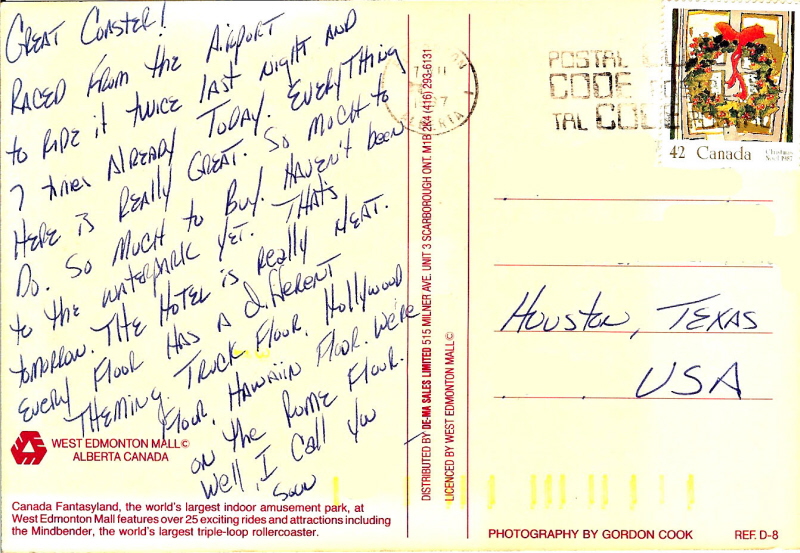 GREAT COASTER!
RACED FROM the AIRPORT
to RIDE it twice LAST NIGHT AND
7 times ALREADY TODAY. EVERYTHING
HERE IS REALLY GREAT. SO MUCH to
DO. SO MUCH to BUY. HAVEN'T been
to the WATERPARK YET. THAT'S
tomorrow. THE HOTEL is REALLY NEAT.
EVERY FLOOR HAS A different
THEMING. TRUCK FLOOR. Hollywood
FLOOR. HAWAIIN FLOOR. We're
on the ROME FLOOR.
Well, I CALL YOU
soon
WEST EDMONTON MALL©
ALBERTA CANADA
Canada Fantasyland, the world's largest indoor amusement park, at
West Edmonton Mall features over 25 exciting rides and attractions including
the Mindbender, the world's largest triple-loop rollercoaster.
DISTRIBUTED BY DE-MA SALES LIMITED 515 MILNER AVE. UNIT 3 SCARBOROUGH ONT. M1B 2K4 (416) 293-6131
LICENCED BY WEST EDMONTON MALL©
ALBERTA
POSTAL
CODE
TAL CODE
42 Canada
Christmas
Noël 1987
HOUSTON, TEXAS
USA
PHOTOGRAPHY BY GORDON COOK
REF. D-8